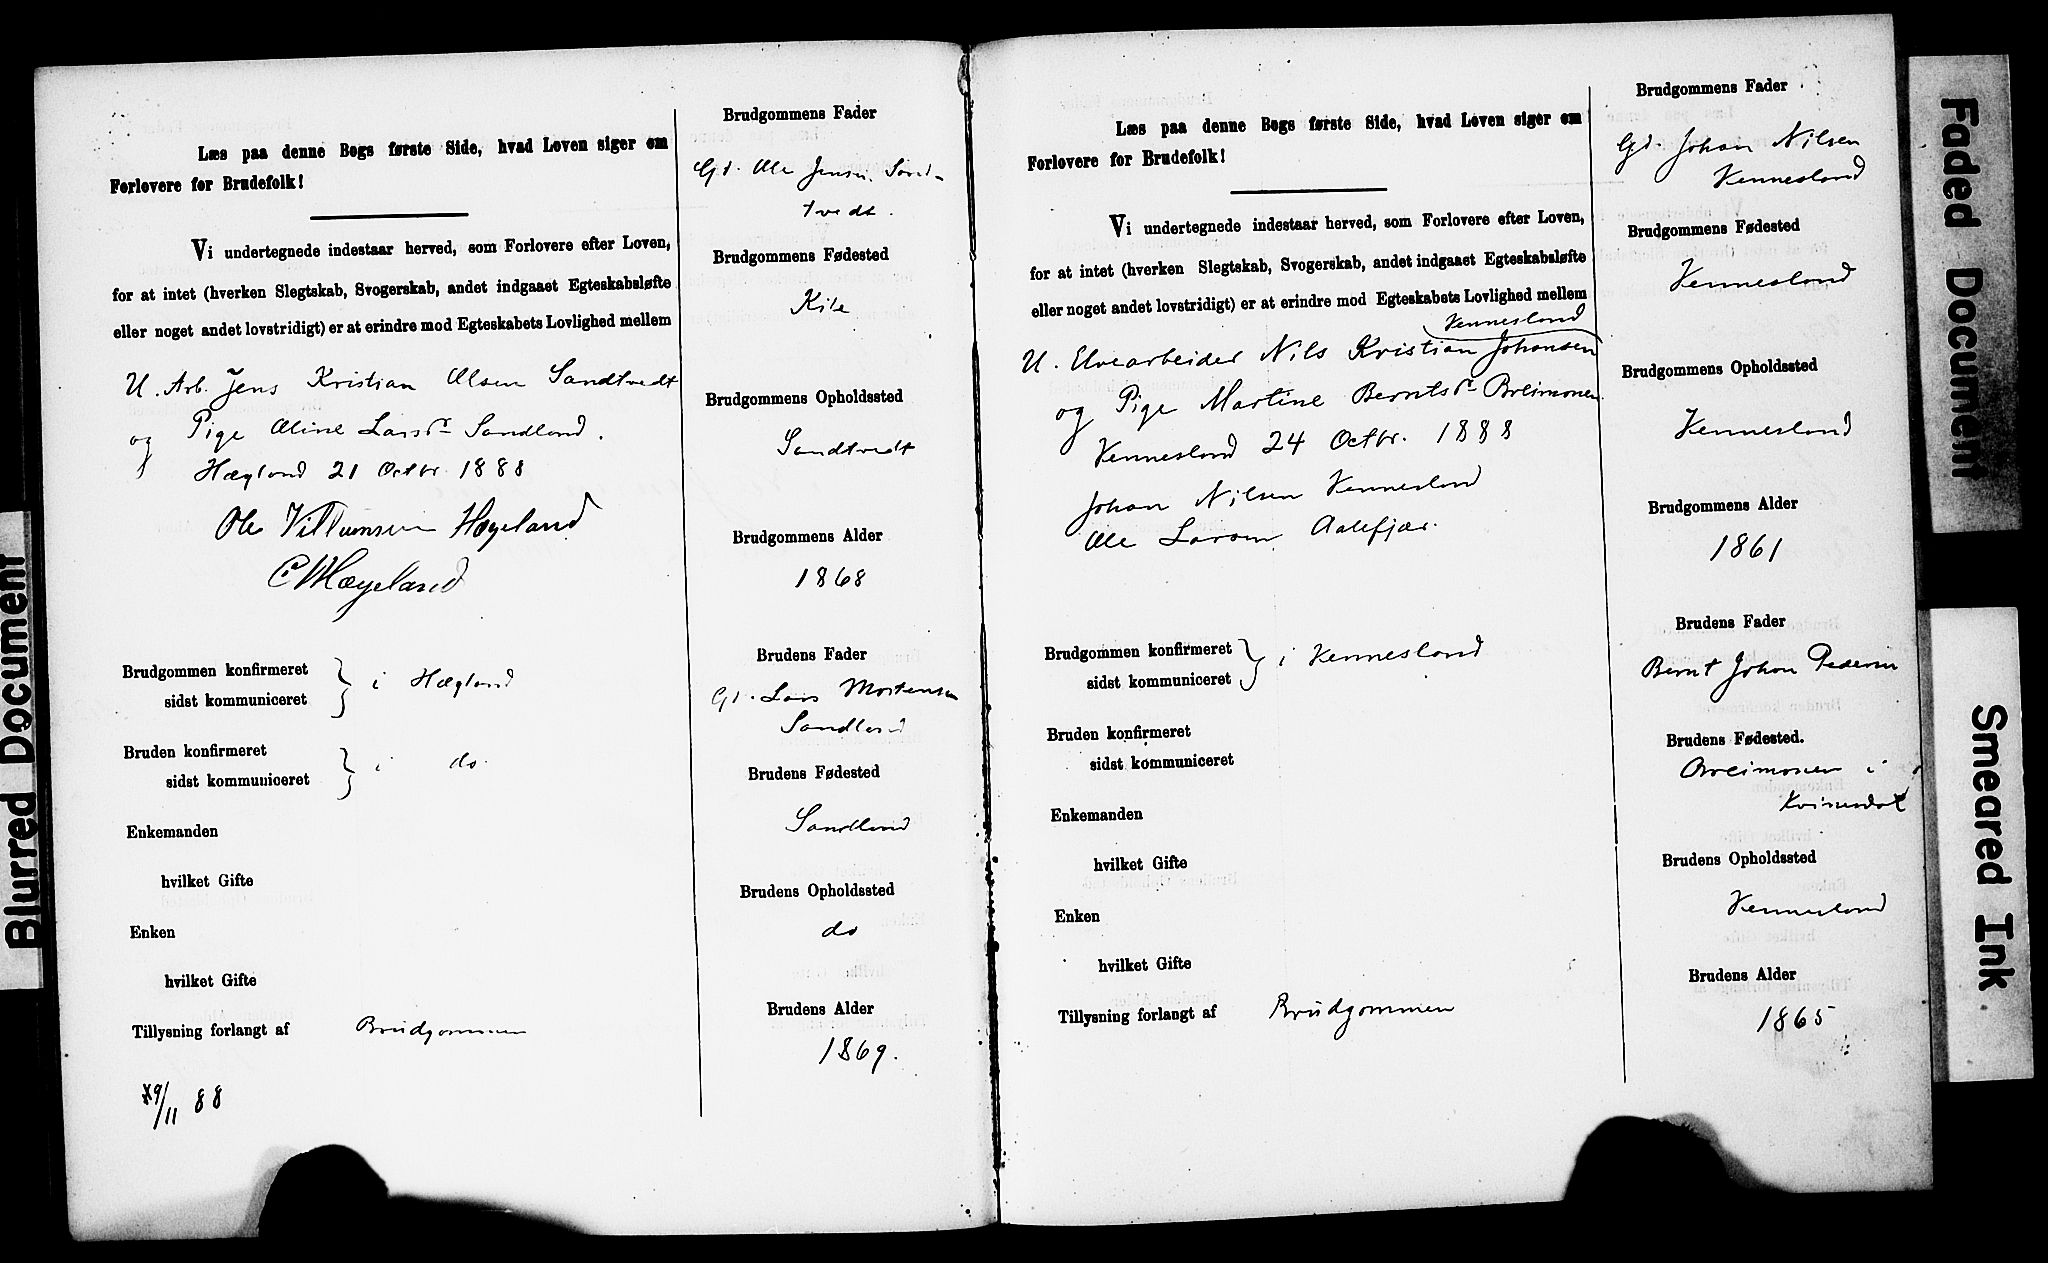 Blurred Document
Læs paa denne Bogs første Side, hvad Loven siger om
Forlovere for Brudefolk!
Vi undertegnede indestaar herved, som Forlovere efter Loven,
for at intet (hverken Slegtskab, Svogerskab, andet indgaaet Egteskabsløfte
eller noget andet lovstridigt) er at erindre mod Egteskabets Lovlighed mellem
U. Arb. Jens Kristian Olsen Sandtvedt
og Pige Oline Larsdr Sandland.
Hægland 21 Octbr. 1888
Ole Villumsen Hægeland
Hægeland
Brudgommen konfirmeret
sidst kommuniceret
i Hægland
Bruden konfirmeret
sidst kommuniceret
i do.
Enkemanden
hvilket Gifte
Enken
hvilket Gifte
Tillysning forlangt af Brudgommen
9/11 88
Brudgommens Fader
Gd. Ole Jensen Sand-
tvedt.
Brudgommens Fødested
Kile
Brudgommens Opholdssted
Sandtvedt
Brudgommens Alder
1868
Brudens Fader
Gd. Lars Mortensen
Sandland
Brudens Fødested
Sandland
Brudens Opholdssted
do
Brudens Alder
1869.
Læs paa denne Bogs første Side, hvad Loven siger om
Forlovere for Brudefolk!
Vi undertegnede indestaar herved, som Forlovere efter Loven,
for at intet (hverken Slegtskab, Svogerskab, andet indgaaet Egteskabsløfte
eller noget andet lovstridigt) er at erindre mod Egteskabets Lovlighed mellem
Vennesland
U. Elvearbeider Nils Kristian Johansen
og Pige Martine Berntsdr Breimonen
Vennesland 24 Octbr. 1888
Johan Nilsen Vennesland
Ole Larsen Aalefjær.
Brudgommen konfirmeret
sidst kommuniceret
i Vennesland
Bruden konfirmeret
sidst kommuniceret
Enkemanden
hvilket Gifte
Enken
hvilket Gifte
Tillysning forlangt af Brudgommen
Brudgommens Fader
Gd. Johan Nilsen
Vennesland
Brudgommens Fødested
Vennesland
Brudgommens Opholdssted
Vennesland
Brudgommens Alder
1861
Brudens Fader
Bernt Johan Pedersen
Brudens Fødested.
Breimonen i
Kvinesdal
Brudens Opholdssted
Vennesland
Brudens Alder
1865
Faded Document
Smeared Ink